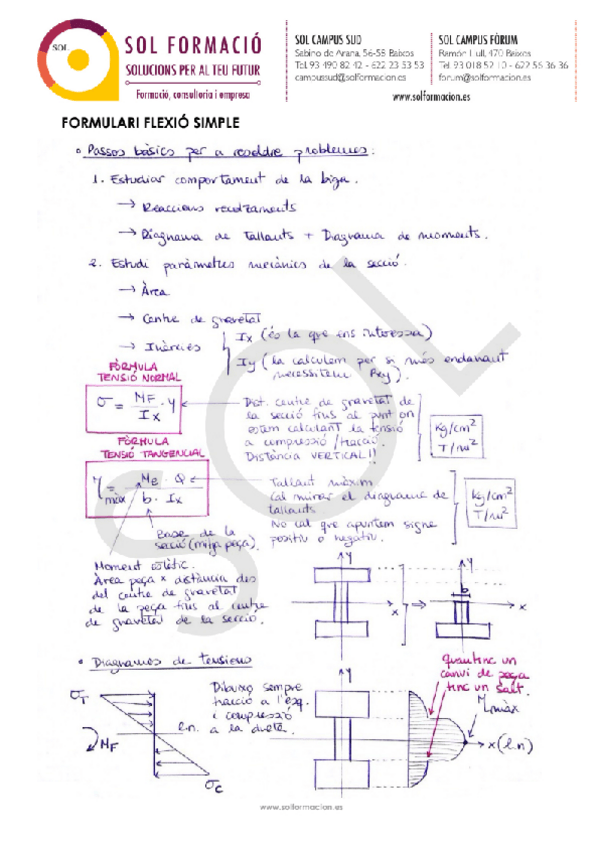 SOL
SOL FORMACIÓ
SOLUCIONS PER AL TEU FUTUR
Formació, consultoria i empresa
SOL CAMPUS SUD
Sabino de Arana, 56-58 Baixos
Tel. 93 490 82 42 - 622 23 53 53
campussud@solformacion.es
SOL CAMPUS FÒRUM
Ramón Llull, 470 Baixos
forum@solformacion.es
www.solformacion.es
FORMULARI FLEXIÓ SIMPLE
• Passos bàsics per a resoldre problemes:
1. Estudiar comportament de la biga.
→ Reaccions recolzaments
→ Diagrama de Tallants + Diagrama de moments.
2. Estudi paràmetres mecànics de la secció.
→ Àrea
→ Centre de gravetat
→ Inèrcies
Ix (és la que ens interessa)
Iy (la calculem per si més endavant
necessitem).
FÒRMULA
TENSIÓ NORMAL
σ = MF / Ix · y
Dist. centre de gravetat de
la secció fins al punt on
estem calculant la tensió
a compressió / tracció.
Distància VERTICAL!!
kg/cm²
T/m²
FÒRMULA
TENSIÓ TANGENCIAL
màx = Me · Q / b · Ix
Tallant màxim
(al mirar el diagrama de
tallants
No cal que apuntem signe
positiu o negatiu.
kg/cm²
T/m²
Base de la
secció (mitja peça).
Moment estàtic.
Àrea peça x distància des
del centre de gravetat
de la peça fins al centre
de gravetat de la secció.
y
x
⇒
y
b
x
• Diagrames de tensions
σT
MF
l.n.
σC
Dibuixo sempre
tracció a l'esq.
i compressió
a la dreta.
y
quan tinc un
canvi de peça
tinc un salt.
màx
x (l.n)
SOL
www.solformacion.es